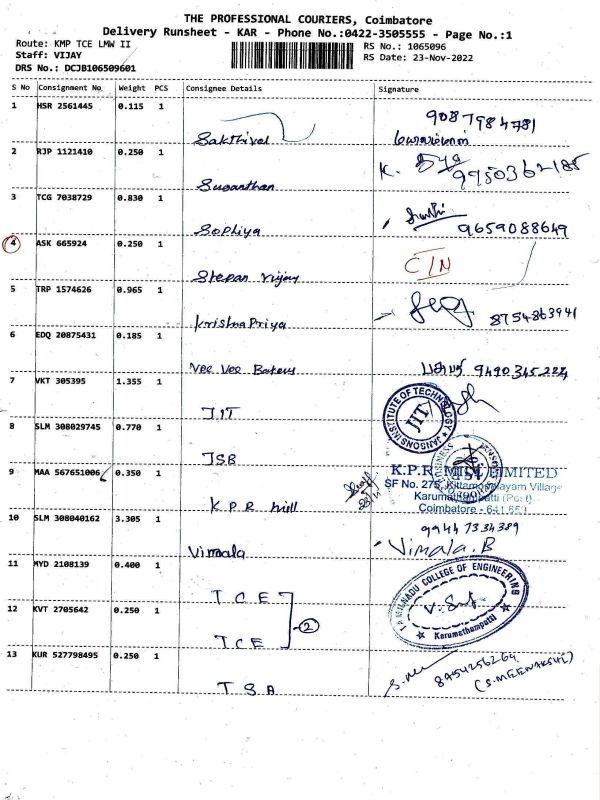 THE PROFESSIONAL COURIERS, Coimbatore
Delivery Runsheet - KAR - Phone No.:0422-3505555 - Page No.:1
Route: KMP TCE LMW II
RS No.: 1065096
Staff: VIJAY
RS Date: 23-Nov-2022
DRS No.: DCJB106509601
S No Consignment No Weight PCS Consignee Details Signature
1 HSR 2561445 0.115 1 Sakthivel 9087984781
2 RJP 1121410 0.250 1 Suganthan K. 9950362185
3 TCG 7038729 0.830 1 Sophiya 9659088649
4 ASK 665924 0.250 1 Stepan Vijay C/N
5 TRP 1574626 0.965 1 Krishna Priya 8754863941
6 EDQ 20875431 0.185 1 Vee Vee Bakers 9490345224
7 VKT 305395 1.355 1 JIT
JANSONS INSTITUTE OF TECHNOLOGY
JIT
8 SLM 308029745 0.770 1 JSB
9 MAA 567651006 0.350 1 K.P.R Mill
K.P.R. MILL LIMITED
SF No. 275, Kittampalayam Village
Karumathampatti (Post),
Coimbatore - 641 659
10 SLM 308040162 3.305 1 Vimala 99447334389
Vimala.B
11 MYD 2108139 0.400 1 TCE
TAMILNADU COLLEGE OF ENGINEERING
Karumathampatti
12 KVT 2705642 0.250 1 TCE
2
13 KUR 527798495 0.250 1 TSA 8454256264
(S.MEENAKSHI)